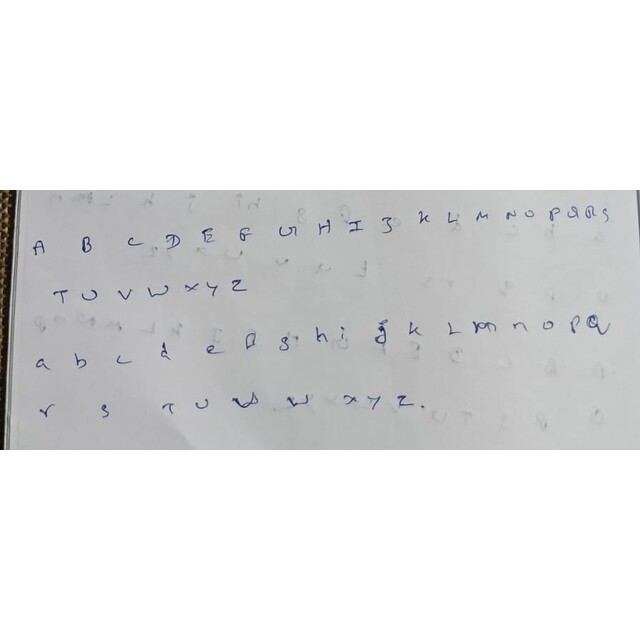 A B C D E F G H I J K L M N O P Q R S
T U V W X Y Z
a b c d e f g h i j k L m n o p q
r s T U V W X Y Z.